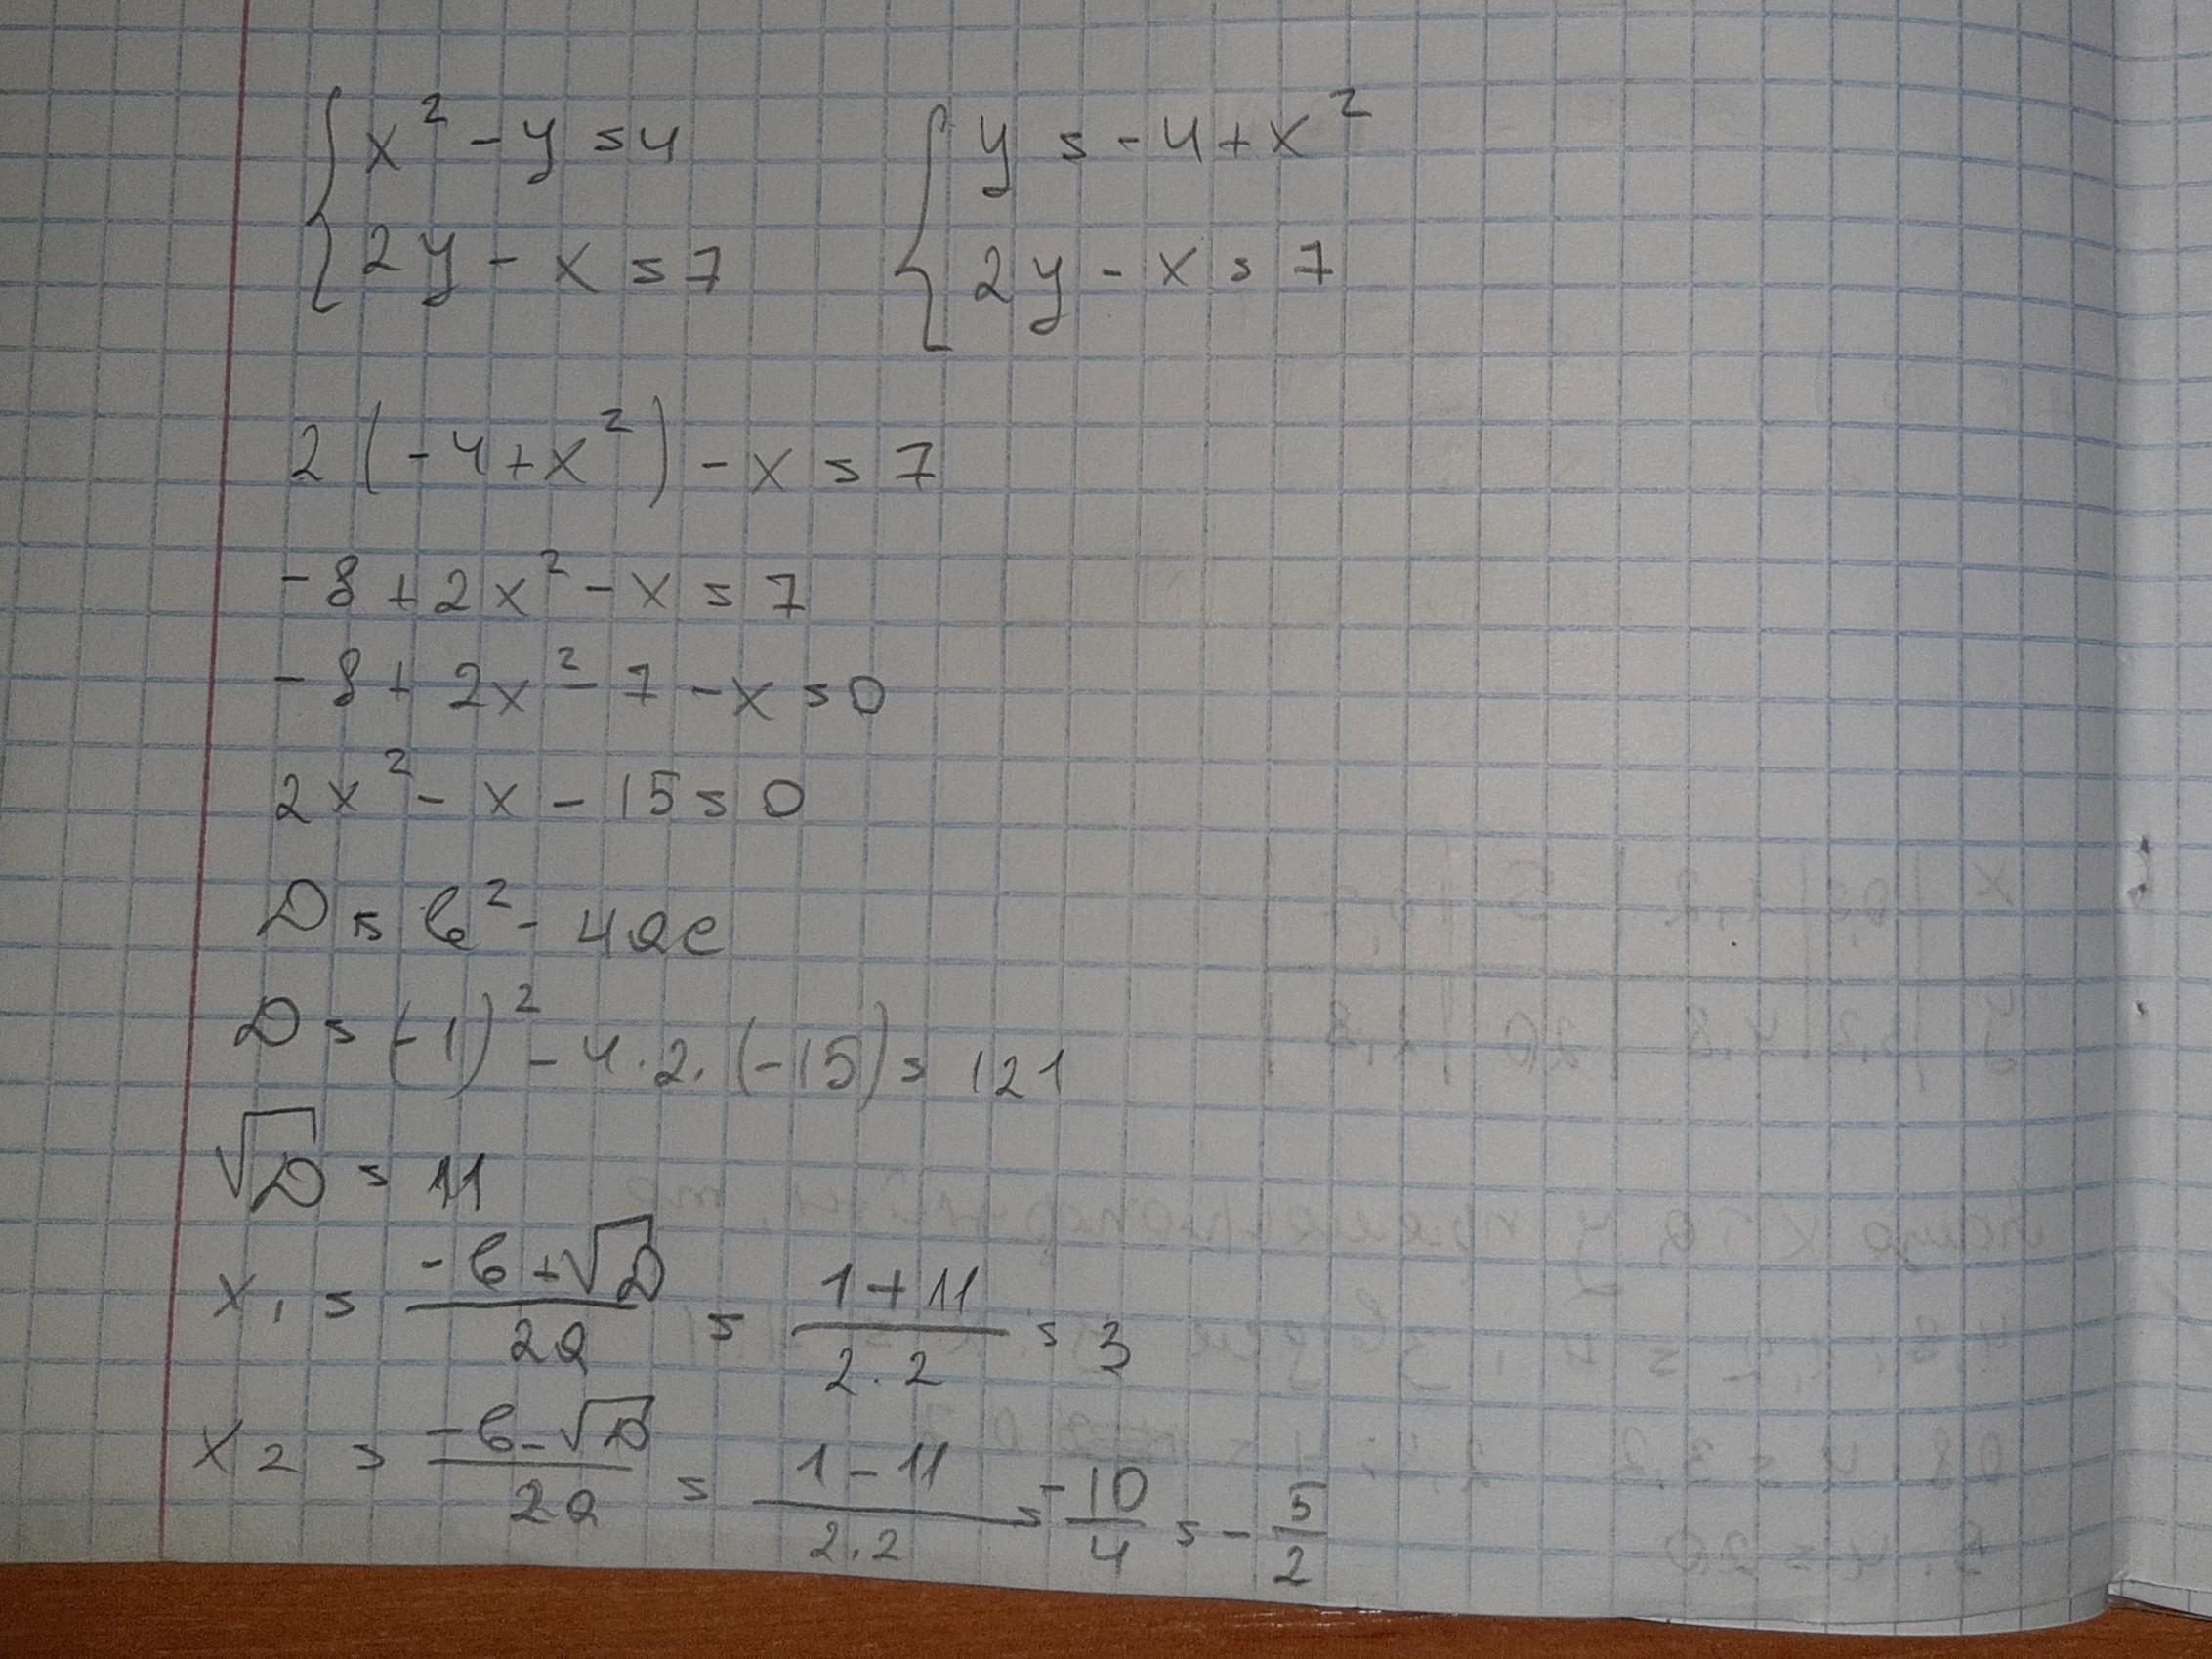 { x² - y = 4 { y = -4 + x²
{ 2y - x = 7 { 2y - x = 7
2(-4+x²) - x = 7
-8 + 2x² - x = 7
-8 + 2x² - 7 - x = 0
2x² - x - 15 = 0
D = b² - 4ac
D = (-1)² - 4·2·(-15) = 121
√D = 11
x₁ = (-b+√D)/(2a) = (1+11)/(2·2) = 3
x₂ = (-b-√D)/(2a) = (1-11)/(2·2) = -10/4 = -5/2